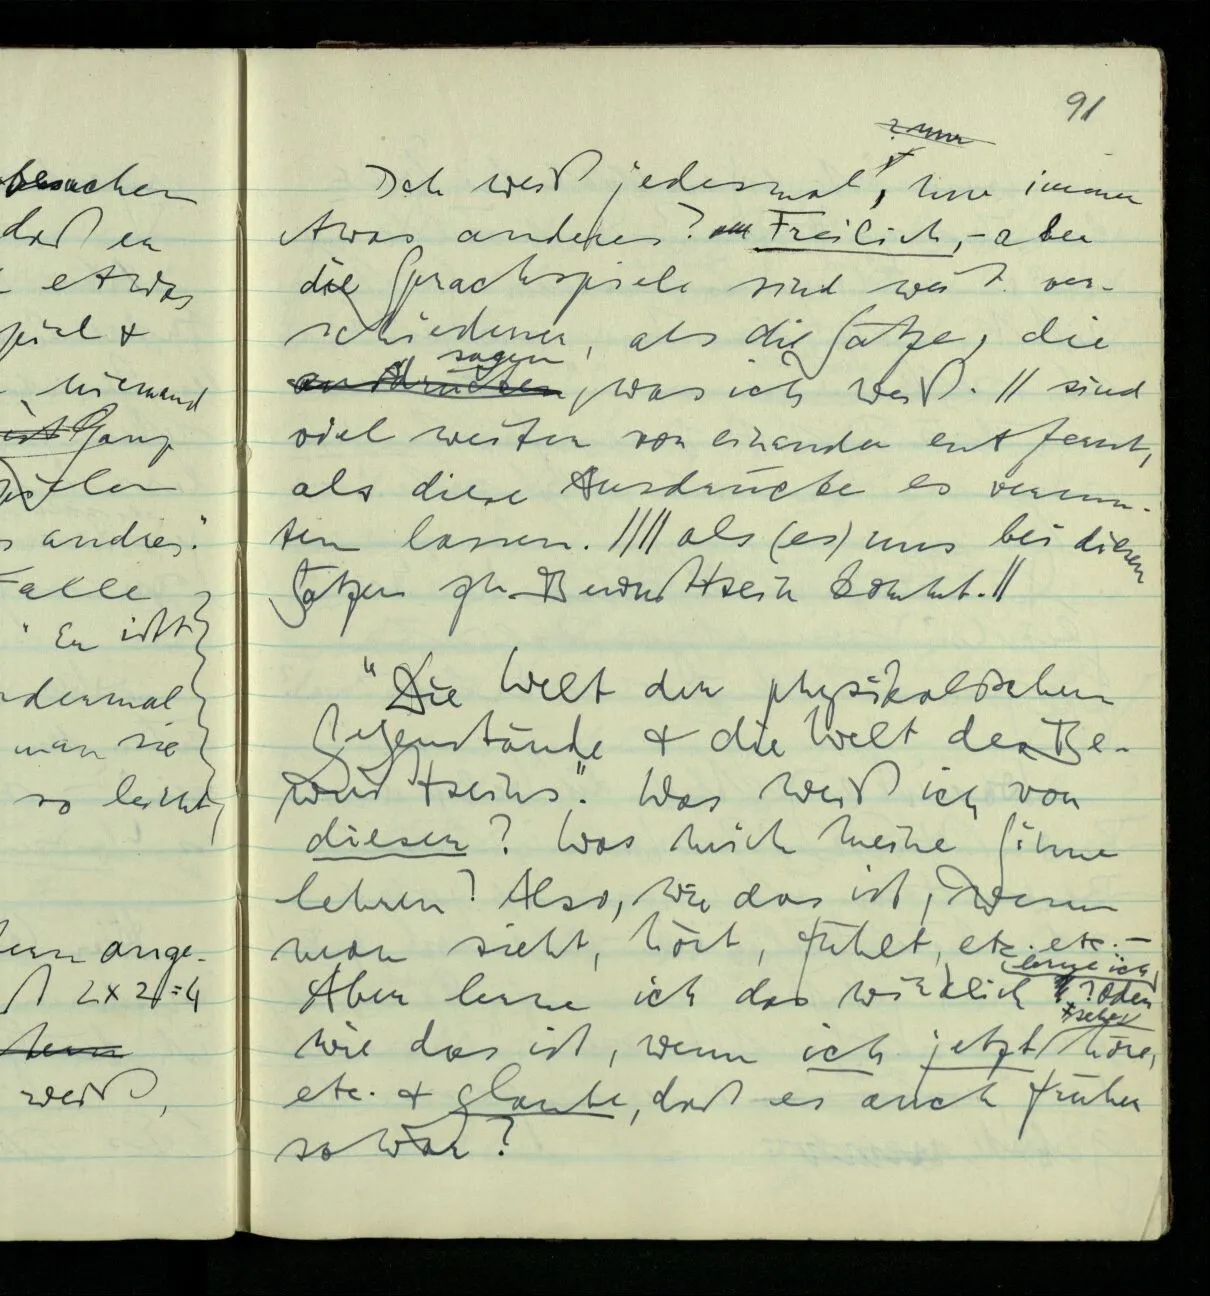 91
Ich weiß jedesmal, nur immer
etwas anderes? Freilich, – aber
die Sprachspiele sind weit ver-
schiedener, als die Sätze, die
sagen
ausdrücken, was ich weiß. // sind
viel weiter von einander entfernt,
als diese Ausdrücke es vermu-
ten lassen. //// als (es) uns bei diesen
Sätzen zum Bewußtsein kommt. //
"Die Welt der physikalischen
Gegenstände & die Welt des Be-
wußtseins". Was weiß ich von
dieser? Was mich meine Sinne
lehren? Also, wie das ist, wenn
man sieht, hört, fühlt, etc. etc. –
lerne ich
Aber lerne ich das wirklich? Oder
sehe,
wie das ist, wenn ich jetzt höre,
etc. & glaube, daß es auch früher
so war?
besuchen
daß er
etwas
spiel &
niemand
ist Ganz
spielen
andres."
Falle
"Er ißt
man sie
so leicht,
ange-
2 x 2 = 4
weiß,